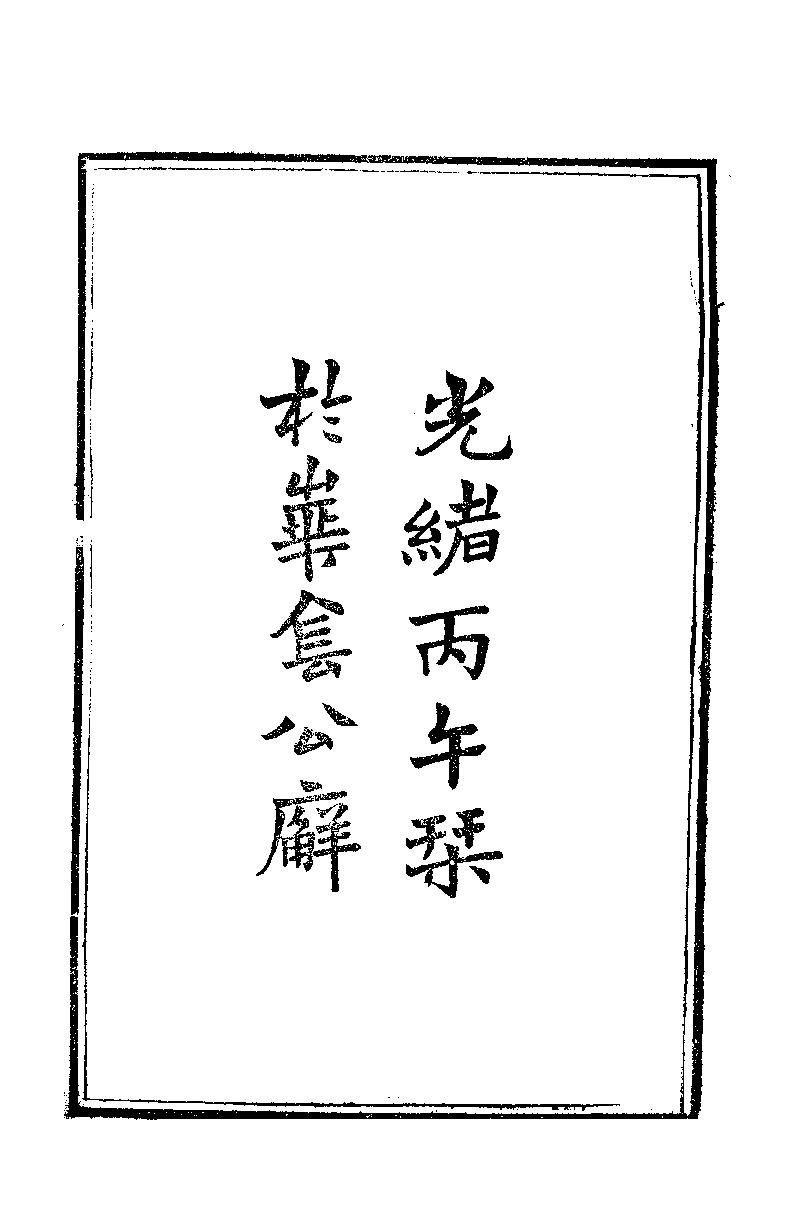 光緒丙午栞
於崋侌公廨